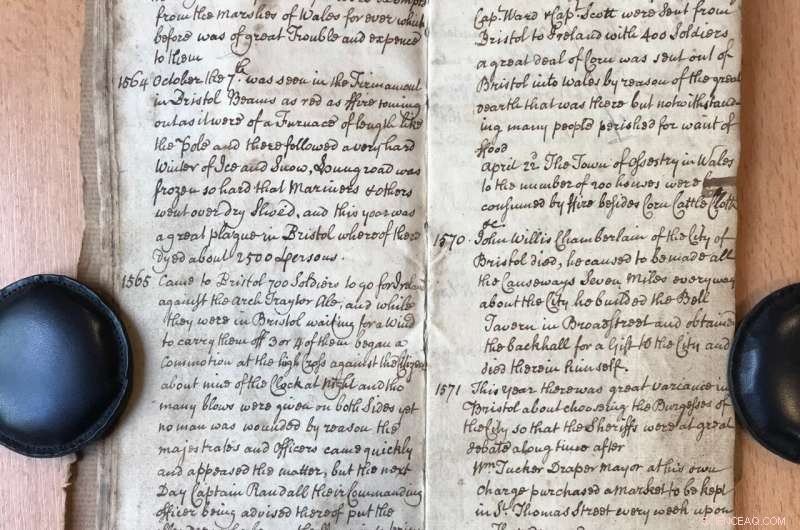 from the Marshes of Wales for ever which
before was of great Trouble and expence
to them
1564 October the 7th was seen in the Firmament
in Bristol Beams as red as ffire coming
out as it were of a Furnace of length like
the Pole and there followed a very hard
Winter of Ice and Snow, Hungroad was
frozen so hard that Mariners & others
went over dry Shod'd, and this year was
a great plague in Bristol whereof there
Dyed about 2500 persons.
1565 Came to Bristol 700 Soldiers to go for Ireland
against the Arch Traytor Ole, and while
they were in Bristol waiting for a Wind
to carry them off 3 or 4 of them began a
Comotion at the high Cross against the Citizens
about nine of the Clock at Night and tho
many blows were given on both Sides yet
no man was wounded by reason the
majestrates and Officers came quickly
and appeased the matter, but the next
Day Captain Randall their Commanding
officer being advised there of put the
Capt. Ward & Capt. Scott were sent from
Bristol to Ireland with 400 Soldiers
a great deal of Corn was sent out of
Bristol into Wales by reason of the great
dearth that was there but notwithstand
ing many people perished for want of
ffood
April 22d The Town of Ossestry in Wales
to the number of 200 houses were
consumed by ffire besides Corn Cattle Cloth
&c
1570. John Willis Chamberlain of the City of
Bristol died, he caused to be made all
the Causeways Seven Miles everyway
about the City he built the Bell
Tavern in Broadstreet and obtained
the backhall for a Gift to the City and
died therein himself.
1571 This year there was great variance in
Bristol about choosing the Burgesses of
the City so that the Sheriffs were at great
debate a long time after
Wm Tucker Draper Mayor at his own
Charge purchased a market to be kept
in St. Thomas Street every week upon
SCIENCEAQ.COM